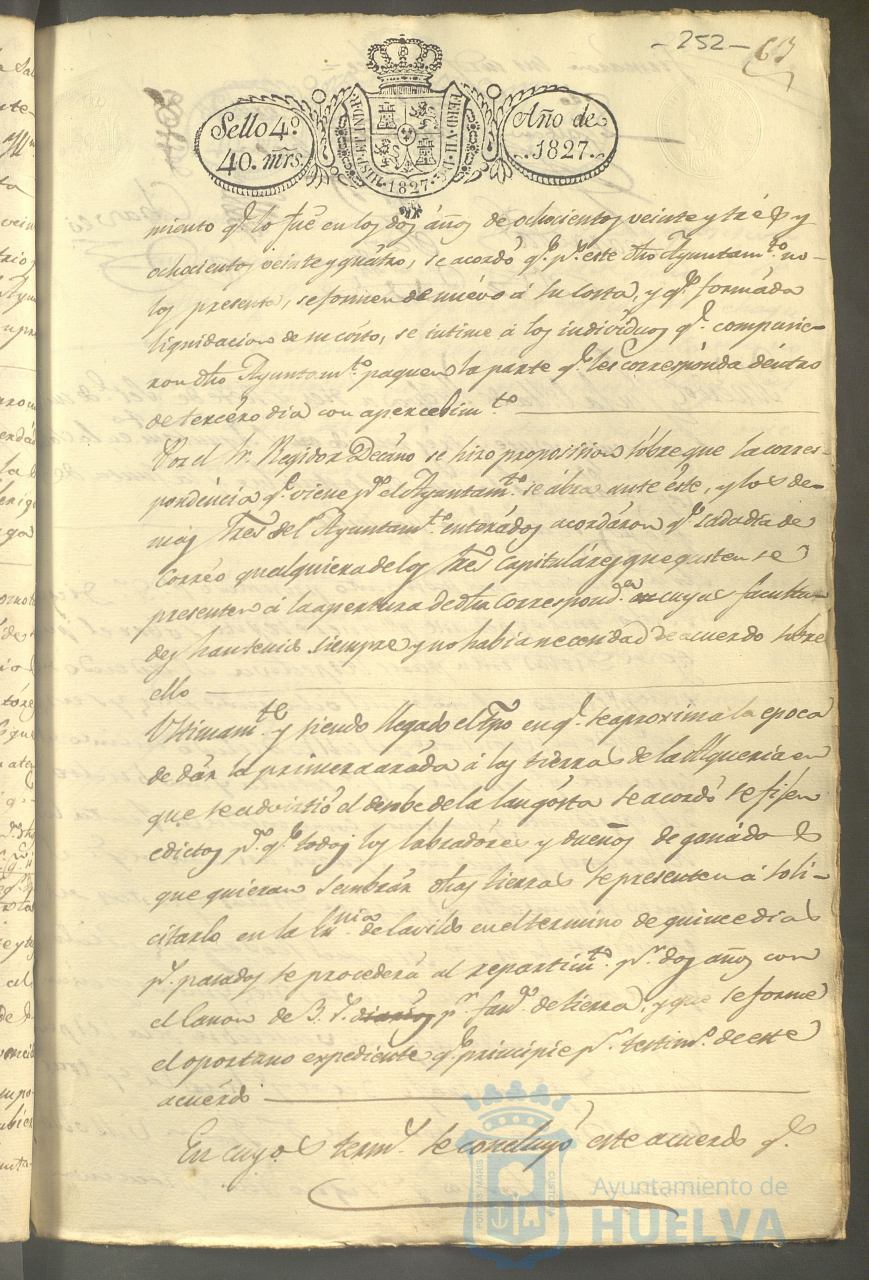 - 252 -
Sello 4º
40. mrs.
HISP. ET IND. R.
FERD. VII. D. G.
1827
Año de
1827.
miento q.e lo fué en los dos años de ochocientos veinte y trés y
ochocientos veinte y quátro, se acordó q.e p.r este dho Ayuntam.to no
los presenta, se formen de nuévo á su costa, y q.e formáda
liquidacion de su costo, se intíme á los individuos q.e compusie-
ron dho Ayuntam.to paguen la parte q.e les correspónda déntro
de tercéro dia con apercebim.to
Por el Sr. Regidor Decáno se hizo proposicion sóbre que la corres-
pondéncia q.e viene p.a el Ayuntam.to se ábra ante éste, y los de-
mas Sres del Ayuntam.to enterádos acordáron q.e cada dia de
Corréo qualquiera de los Sres Capituláres que gusten se
presenten á la apertura de dha correspond.a cuyas faculta-
des han tenido siempre y no había necesidad de acuerdo sobre
ello
Ultimam.te y siendo llegado el tpo en q.e se aproxima la epoca
de dár la primera aráda á las tierras de la Alqueria en
que se advirtió el desobe de la langósta se acordó se fijen
edictos p.a q.e todos los labradóres y dueños de ganádo
que quieran sembrár dhas tierras se presenten á soli-
citarlo en la Sria de Cavildo en el termino de quince dias
p.s pasados se procederá al repartim.to p.r dos años con
el Canon de 3. r. diarios p.r fan.a de tierra, y que se forme
el oportuno expediénte q.e principie p.r testim.o de este
acuérdo
En cuyos term.s se concluyó este acuerdo q.e
PORTUS MARIS
CUSTODIA
Ayuntamiento de
HUELVA